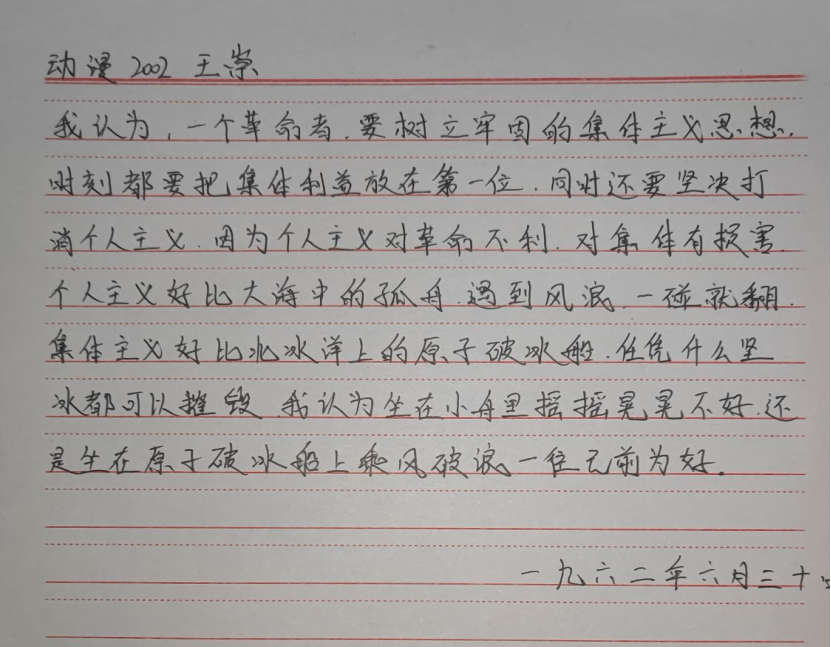 动漫2002 王崇
我认为,一个革命者.要树立牢固的集体主义思想,
时刻都要把集体利益放在第一位.同时还要坚决打
消个人主义.因为个人主义对革命不利.对集体有损害.
个人主义好比大海中的孤舟.遇到风浪.一碰就翻.
集体主义好比北冰洋上的原子破冰船.任凭什么坚
冰都可以摧毁 我认为坐在小舟里摇摇晃晃不好.还
是坐在原子破冰船上乘风破浪一往无前为好.
一九六二年六月三十